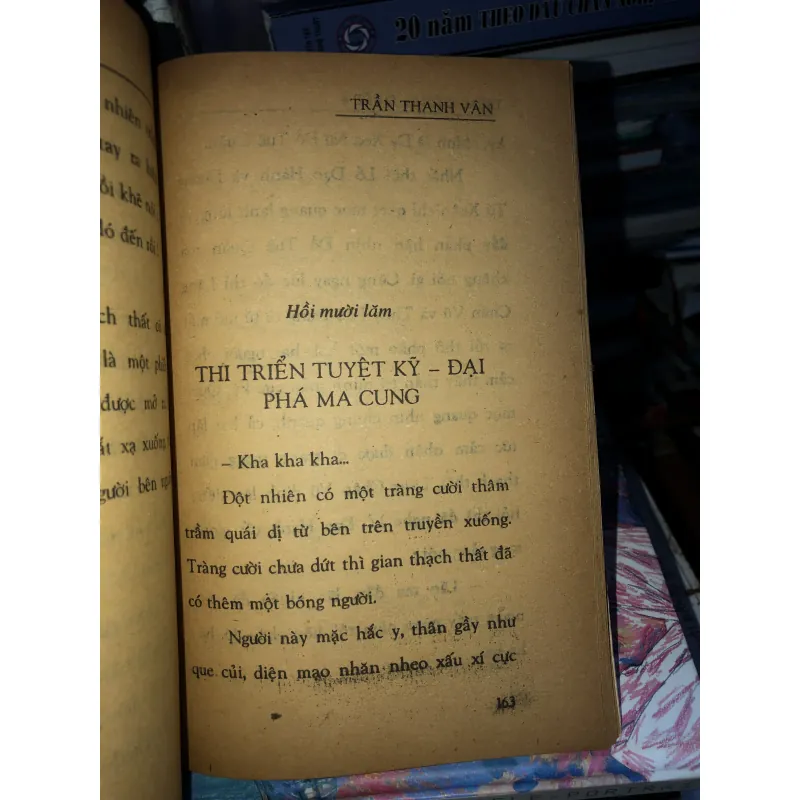 20 năm THEO DẤU CHÂN
TRẦN THANH VÂN
nhiên
tay ra
ồi khẽ
đó đến
ch thất
là một
được mở
ắt xạ xuống
gười bên
Hồi mười lăm
THI TRIỂN TUYỆT KỸ – ĐẠI
PHÁ MA CUNG
– Kha kha kha...
Đột nhiên có một tràng cười thâm
trầm quái dị từ bên trên truyền xuống.
Tràng cười chưa dứt thì gian thạch thất đã
có thêm một bóng người.
Người này mặc hắc y, thân gầy như
que củi, diện mạo nhăn nheo xấu xí cực
163